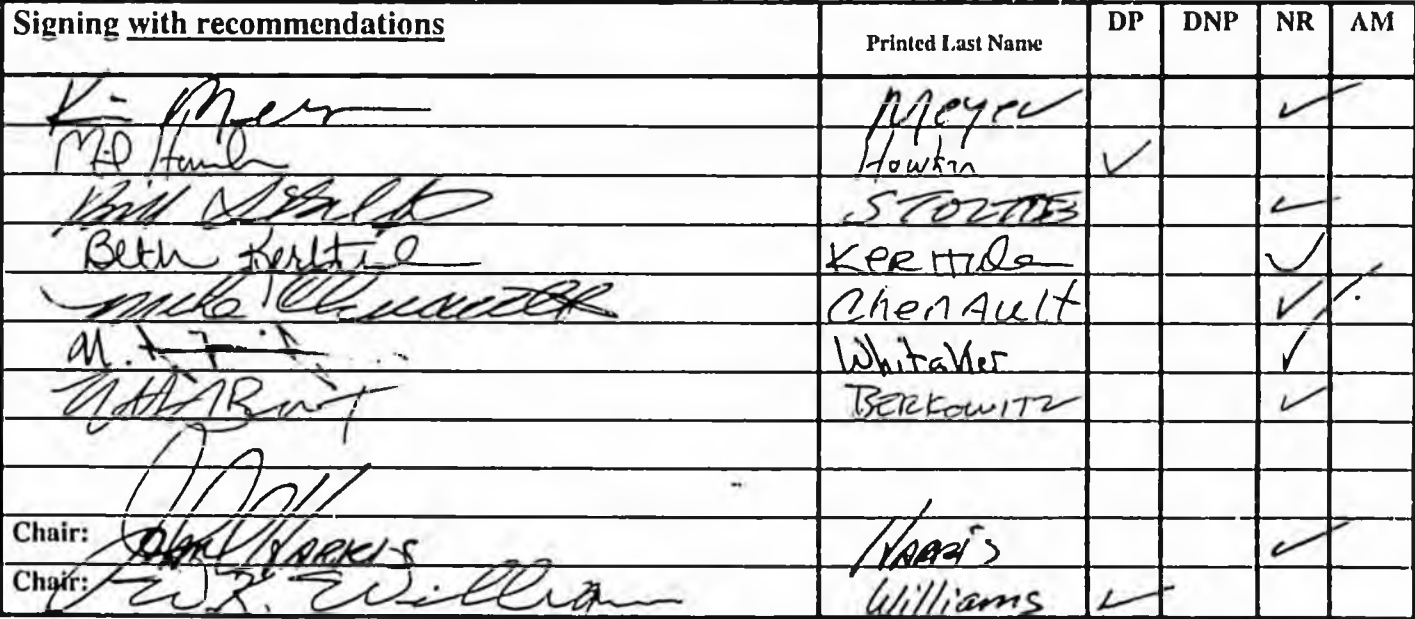 Signing with recommendations Printed Last Name DP DNP NR AM
Meyer ✓
Hawkin ✓
Bill Stoltze STOLTZE ✓
Beth Kerttula Kerttula ✓
Mike Chenault Chenault ✓
M. Whitaker ✓
BERKOWITZ ✓
Chair: John Harris Harris ✓
Chair: W.K. Williams Williams ✓